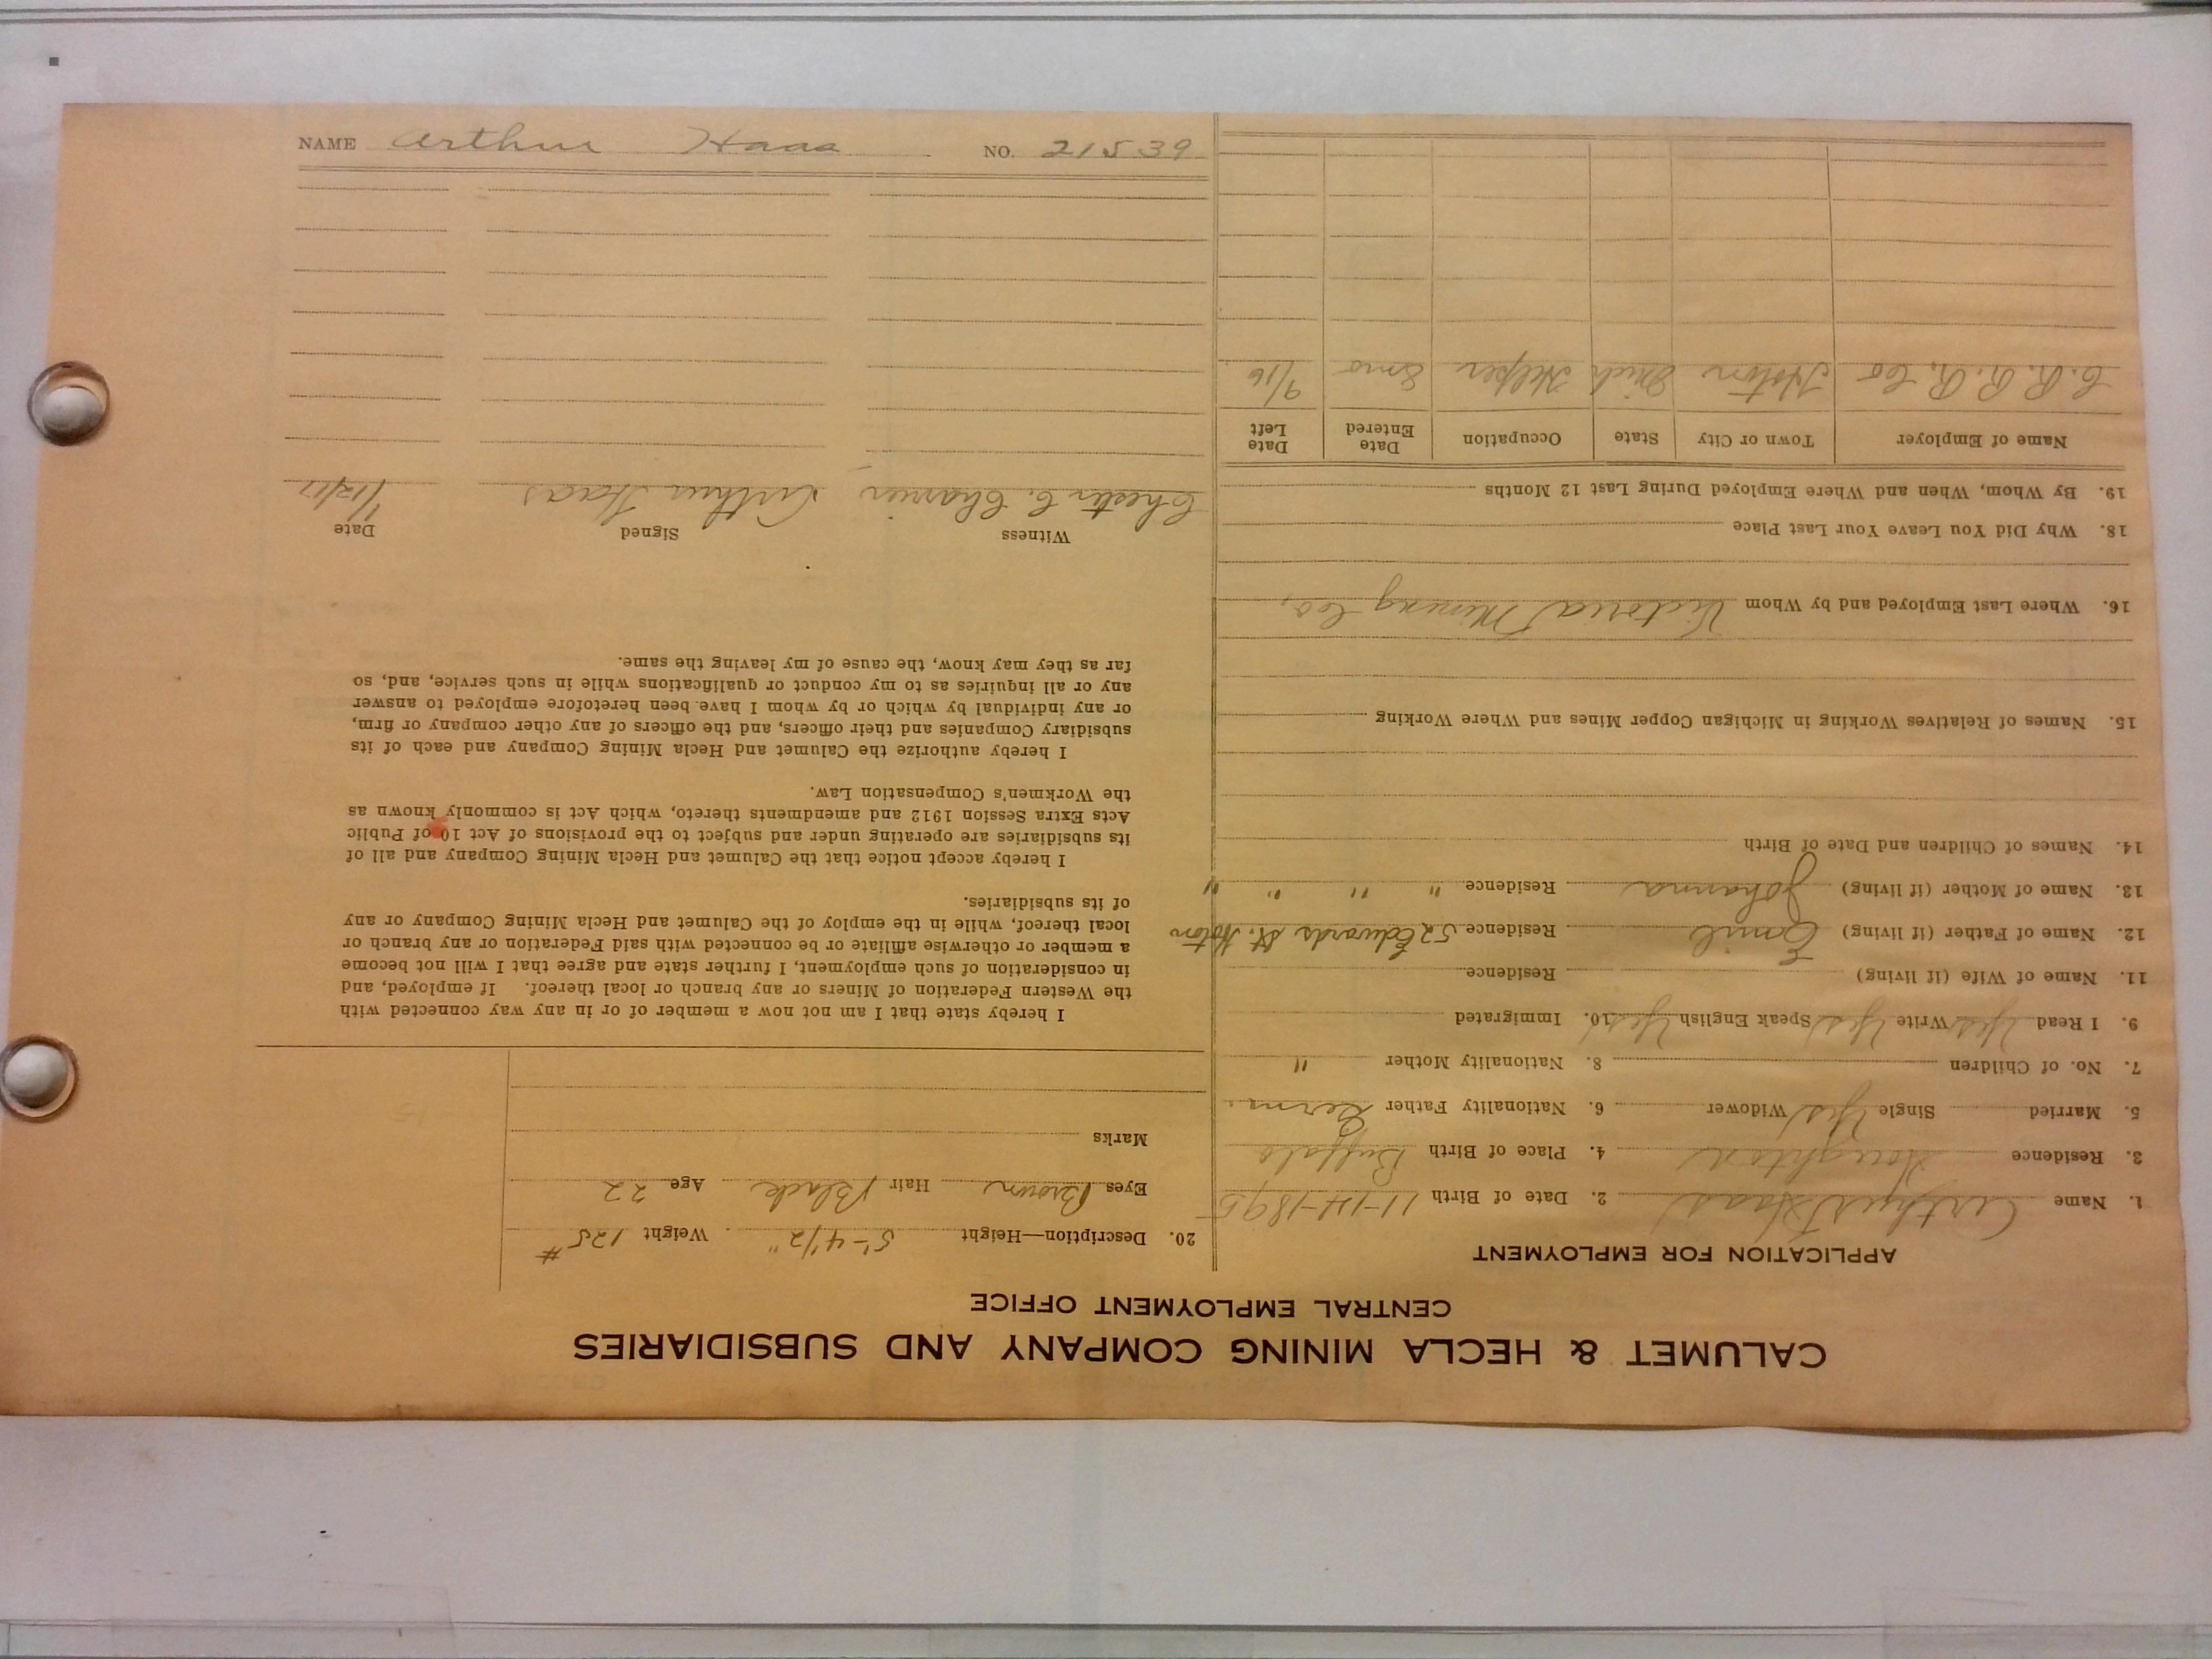 CALUMET & HECLA MINING COMPANY AND SUBSIDIARIES
CENTRAL EMPLOYMENT OFFICE
APPLICATION FOR EMPLOYMENT
1. Name Arthur Haas 2. Date of Birth 11-14-1895
3. Residence Houghton 4. Place of Birth Buffalo
5. Married Single Yes Widower 6. Nationality Father Germ.
7. No. of Children 8. Nationality Mother "
9. I Read Yes Write Yes Speak English Yes 10. Immigrated
11. Name of Wife (if living) Residence
12. Name of Father (if living) Emil Residence 52 Edwards St. Hoton
13. Name of Mother (if living) Johanna Residence " " " "
14. Names of Children and Date of Birth
15. Names of Relatives Working in Michigan Copper Mines and Where Working
16. Where Last Employed and by Whom Victoria Mining Co.
18. Why Did You Leave Your Last Place
19. By Whom, When and Where Employed During Last 12 Months
Name of Employer Town or City State Occupation Date Entered Date Left
C. R. R. R. Co Hoton Mich Helper 8mo 9/16
20. Description—Height 5'-4 1/2" Weight 125#
Eyes Brown Hair Black Age 22
Marks
I hereby state that I am not now a member of or in any way connected with
the Western Federation of Miners or any branch or local thereof. If employed, and
in consideration of such employment, I further state and agree that I will not become
a member or otherwise affiliate or be connected with said Federation or any branch or
local thereof, while in the employ of the Calumet and Hecla Mining Company or any
of its subsidiaries.
I hereby accept notice that the Calumet and Hecla Mining Company and all of
its subsidiaries are operating under and subject to the provisions of Act 10 of Public
Acts Extra Session 1912 and amendments thereto, which Act is commonly known as
the Workmen's Compensation Law.
I hereby authorize the Calumet and Hecla Mining Company and each of its
subsidiary Companies and their officers, and the officers of any other company or firm,
or any individual by which or by whom I have been heretofore employed to answer
any or all inquiries as to my conduct or qualifications while in such service, and, so
far as they may know, the cause of my leaving the same.
Witness Signed Date
Chester C. Arthur Haas 1/12/17
NAME Arthur Haas NO. 21539